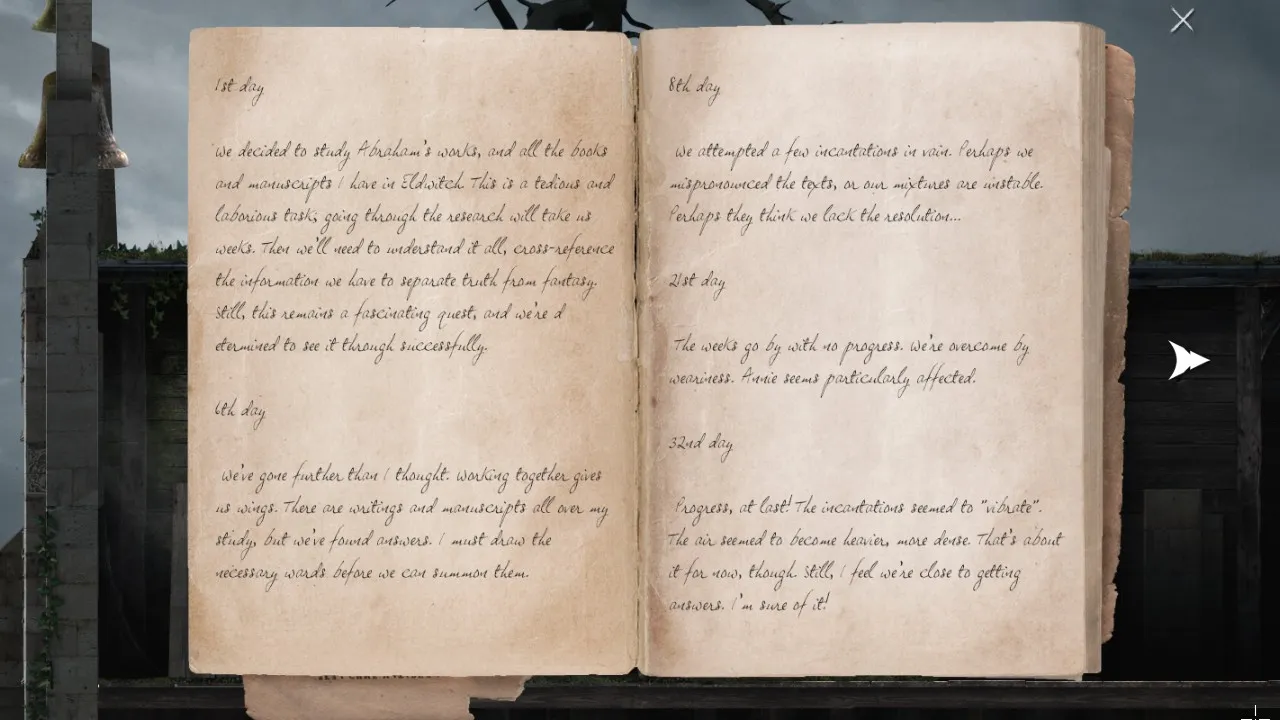 1st day
We decided to study Abraham's works, and all the books
and manuscripts I have in Eldwitch. This is a tedious and
laborious task; going through the research will take us
weeks. Then we'll need to understand it all, cross-reference
the information we have to separate truth from fantasy.
Still, this remains a fascinating quest, and we're d
etermined to see it through successfully.
6th day
We've gone further than I thought. Working together gives
us wings. There are writings and manuscripts all over my
study, but we've found answers. I must draw the
necessary wards before we can summon them.
8th day
We attempted a few incantations in vain. Perhaps we
mispronounced the texts, or our mixtures are unstable.
Perhaps they think we lack the resolution...
21st day
The weeks go by with no progress. We're overcome by
weariness. Annie seems particularly affected.
32nd day
Progress, at last! The incantations seemed to "vibrate".
The air seemed to become heavier, more dense. That's about
it for now, though. Still, I feel we're close to getting
answers. I'm sure of it!